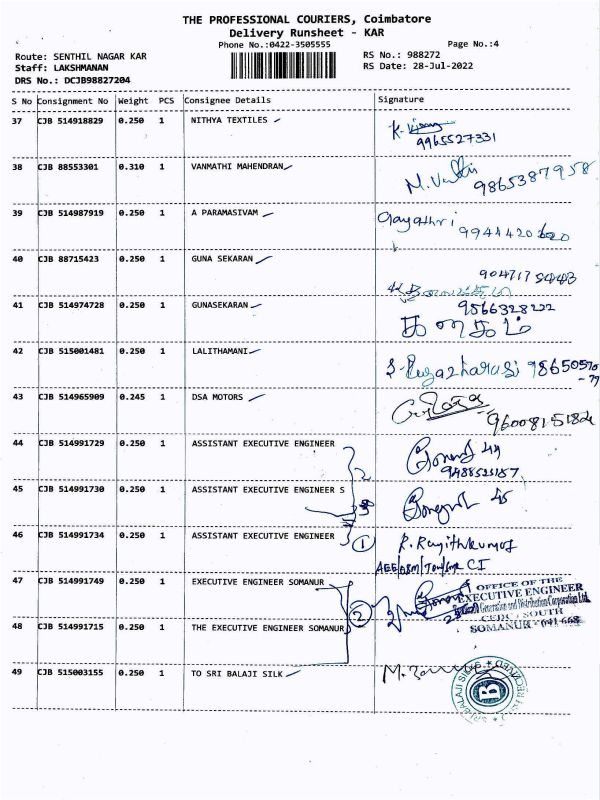 THE PROFESSIONAL COURIERS, Coimbatore
Delivery Runsheet - KAR
Phone No.:0422-3505555
Page No.:4
Route: SENTHIL NAGAR KAR
RS No.: 988272
Staff: LAKSHMANAN
RS Date: 28-Jul-2022
DRS No.: DCJB98827204
S No Consignment No Weight PCS Consignee Details Signature
37 CJB 514918829 0.250 1 NITHYA TEXTILES
9965527331
38 CJB 88553301 0.310 1 VANMATHI MAHENDRAN
9865387958
39 CJB 514987919 0.250 1 A PARAMASIVAM Gayathri
40 CJB 88715423 0.250 1 GUNA SEKARAN
41 CJB 514974728 0.250 1 GUNASEKARAN
9566328222
42 CJB 515001481 0.250 1 LALITHAMANI
43 CJB 514965909 0.245 1 DSA MOTORS
44 CJB 514991729 0.250 1 ASSISTANT EXECUTIVE ENGINEER
2
45 CJB 514991730 0.250 1 ASSISTANT EXECUTIVE ENGINEER S
46 CJB 514991734 0.250 1 ASSISTANT EXECUTIVE ENGINEER 1 R. Ranjithkumar
47 CJB 514991749 0.250 1 EXECUTIVE ENGINEER SOMANUR
OFFICE OF THE
EXECUTIVE ENGINEER
Generation and Distribution Corporation Ltd.
2
CEDC / SOUTH
SOMANUR - 641 668
48 CJB 514991715 0.250 1 THE EXECUTIVE ENGINEER SOMANUR
49 CJB 515003155 0.250 1 TO SRI BALAJI SILK
B